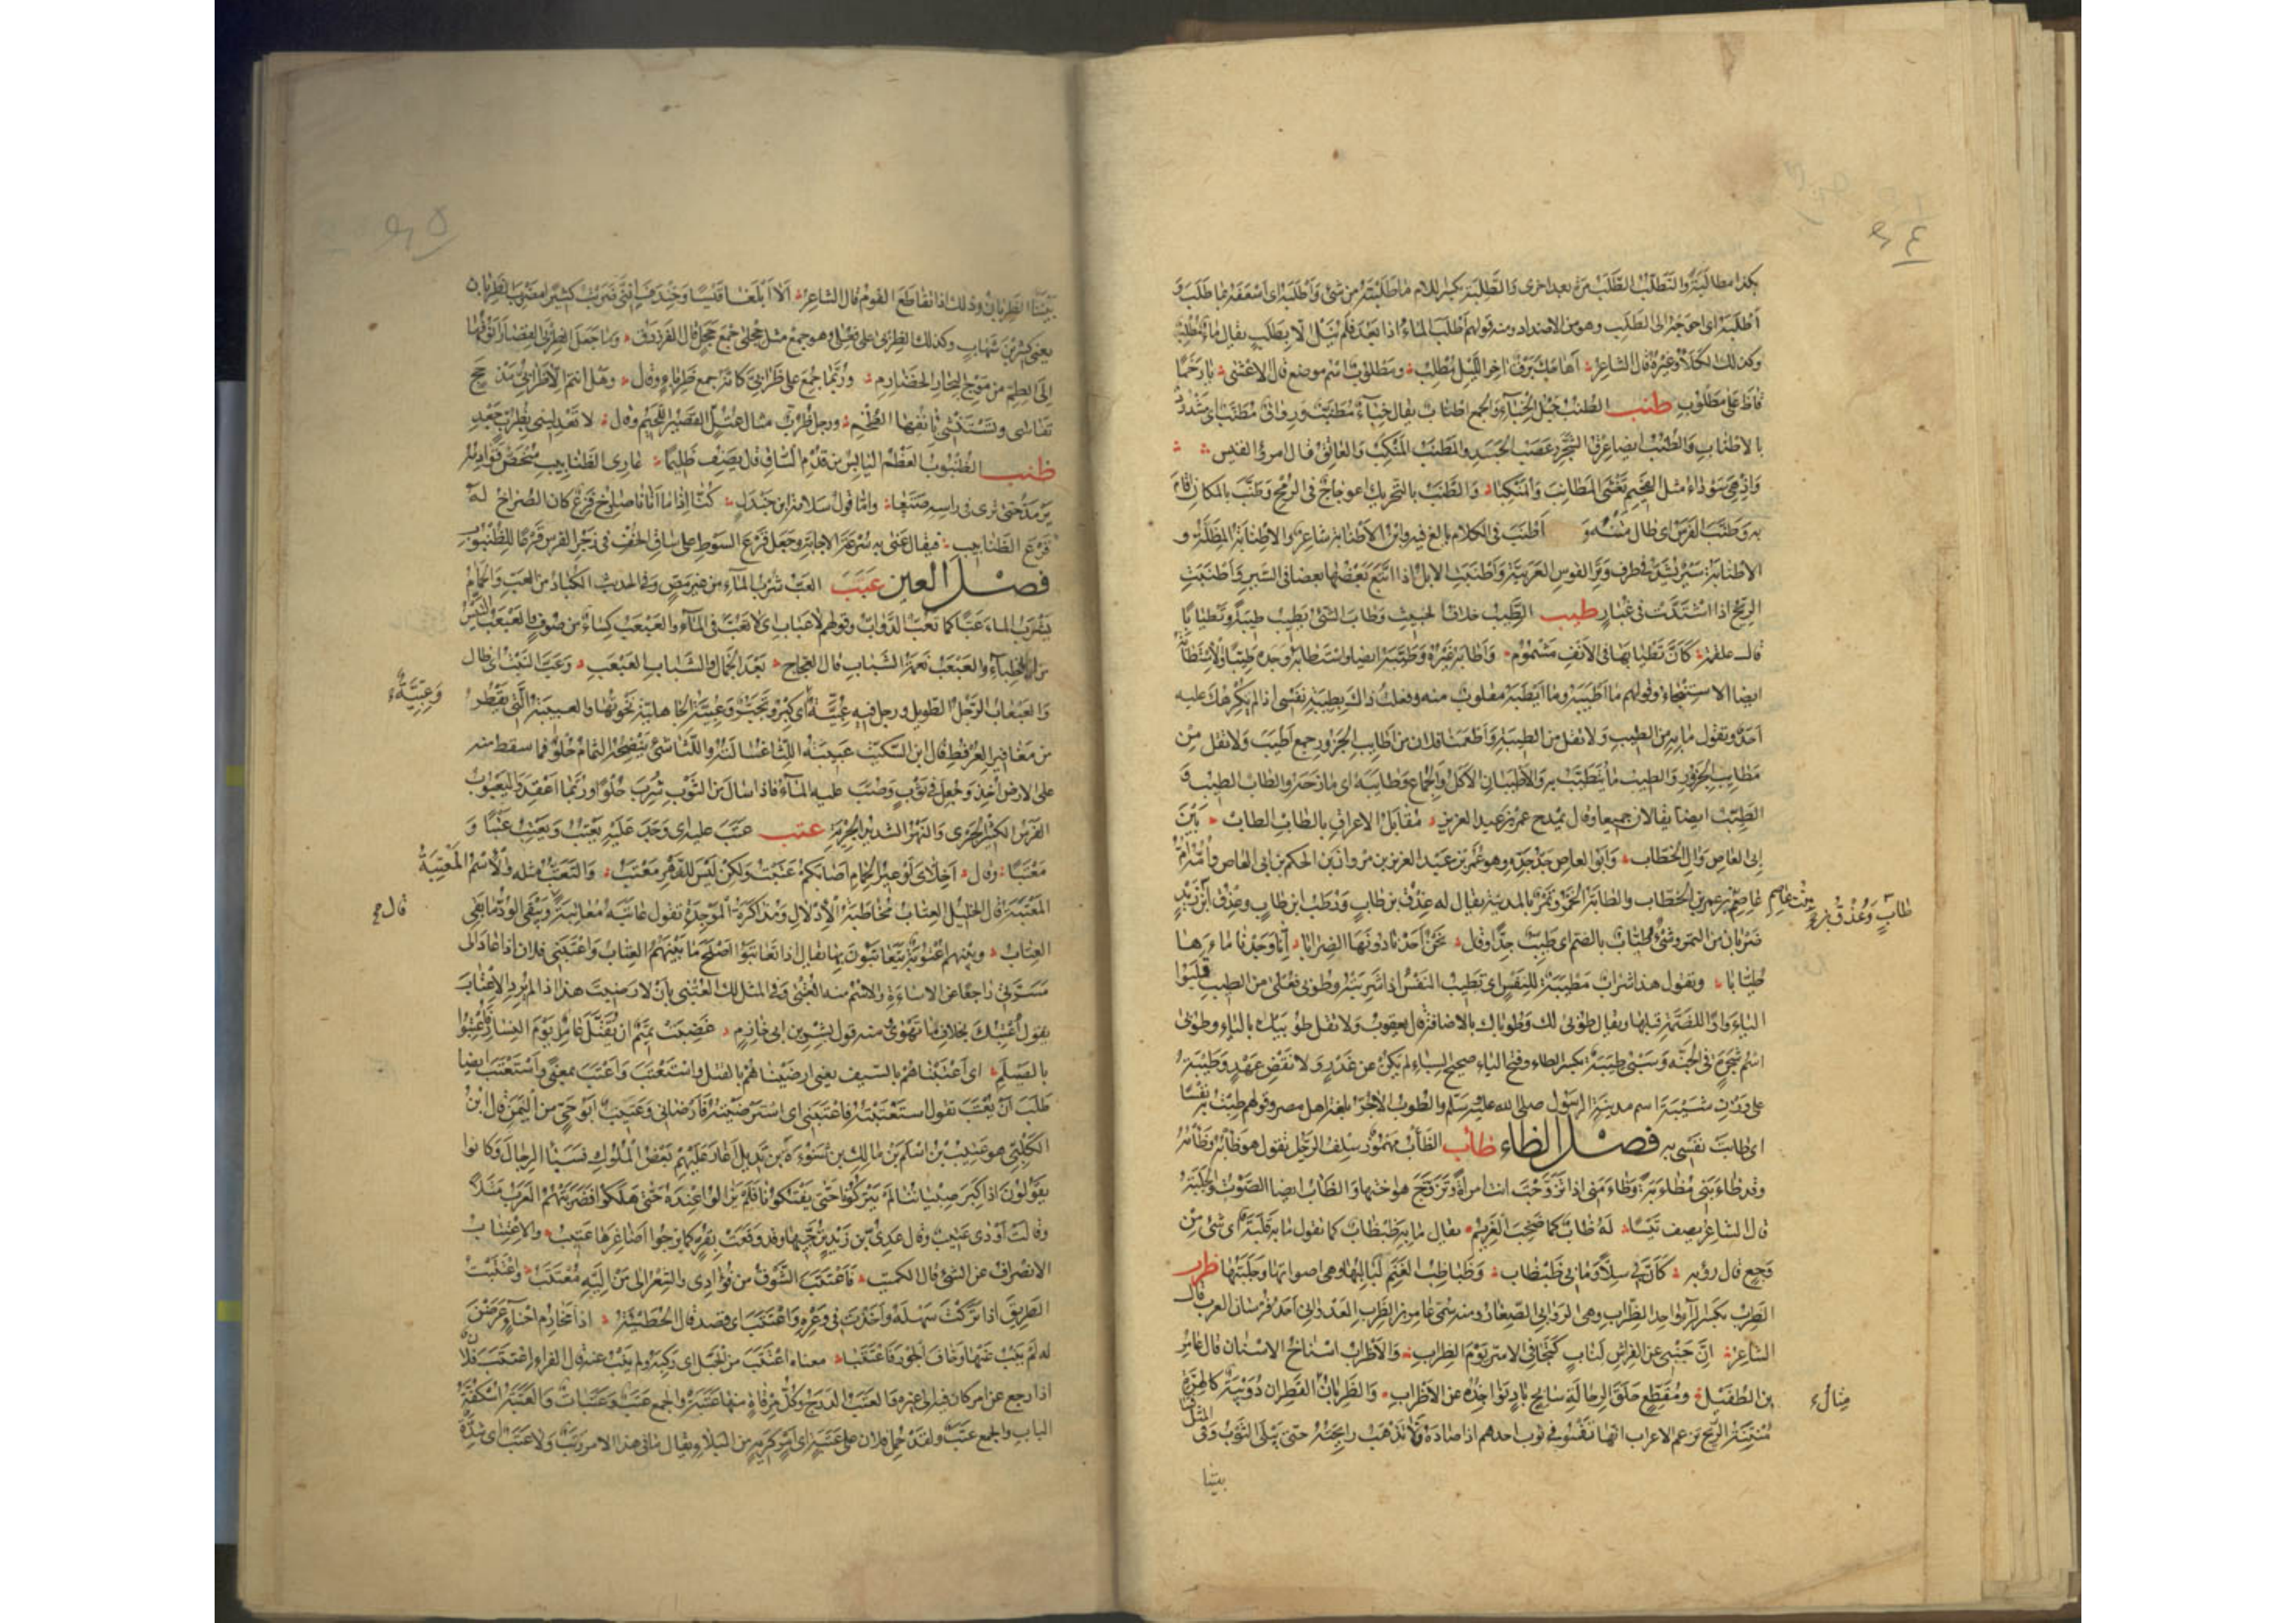 بكذا مطالبة والتطلب الطلب مرة بعد اخرى والطلبة بكسر اللام ما طلبته من شئ واطلبه اى اسعفه بما طلب و
اطلبه اى احوجه الى الطلب وهو من الاضداد ومنه قولهم اطلب الماء اذا بعد فلم ينل الا بطلب يقال ماء مطلب
وكذلك الكلأ وغيره قال الشاعر أهاجك برق آخر الليل مطلب ومطلوب اسم موضع قال الاعشى يا رخما
قاظ على مطلوب طنب الطنب حبل الخباء والجمع اطناب يقال خباء مطنب ورواق مطنب اى مشدود
بالاطناب والطنب ايضا عرق الشجر وعصب الجسد والمطنب المنكب والعاتق قال امرؤ القيس
واذ هى سوداء مثل الفحيم تغشى المطانب والمنكبا والطنب بالتحريك اعوجاج فى الرمح وطنب بالمكان اقام
به وطنب الفرس اى طال متنه و اطنب فى الكلام بالغ فيه وابن الاطنابة شاعر والاطنابة المظلة و
الاطنابة سير يشد فى طرف وتر القوس العربية واطنبت الابل اذا اتبع بعضها بعضا فى السير واطنبت
الريح اذا اشتدت فى غبار طيب الطيب خلاف الخبيث وطاب الشئ يطيب طيبة وتطيابا
قال علقمة كأن تطيابها فى الانف مشموم واطابه غيره وطيبه ايضا واستطابه وجده طيبا والاستطابة
ايضا الاستنجاء وقولهم ما اطيبه وما ايطبه مقلوب منه وفعلت ذاك بطيبة نفسى اذا لم يكرهك عليه
احد وتقول ما به من الطيب ولا تقل من الطيبة واطعمنا فلان من اطايب الجزور جمع اطيب ولا تقل من
مطايب الجزور والطيب ما يتطيب به والاطيبان الاكل والجماع وطايبه اى مازحه والطاب الطيب و
الطيب ايضا يقالان جميعا وقال يمدح عمر بن عبد العزيز مقابل الاعراق بالطاب الطاب بين
ابى العاص وآل الخطاب وابو العاص جد جده وهو عمر بن عبد العزيز بن مروان بن الحكم بن ابى العاص وامه ام
عاصم بن عمر بن الخطاب والطابة الخمر وتمر بالمدينة يقال له عذق بن طاب ورطب ابن طاب وعذق ابن زيد
بنت عاصم
طاب وعذق بن ع
ضربان من التمر وشئ طياب بالضم اى طيب جدا وقال نحن اجدنا دونها الضرابا انا وجدنا ماءها
طيابا وتقول هذا شراب مطيبة للنفس اى تطيب النفس اذا شربته وطوبى فعلى من الطيب قلبوا
الياء واوا للضمة قبلها ويقال طوبى لك وطوباك بالاضافة قال يعقوب ولا تقل طوبيك بالياء وطوبى
اسم شجرة فى الجنة وسبى طيبة بكسر الطاء وفتح الياء صحيح السباء لم يكن عن غدر ولا نقض عهد وطيبة
على وزن شيبة اسم مدينة الرسول صلى الله عليه وسلم والطوب الآجر بلغة اهل مصر وقولهم طبت به نفسا
اى طابت نفسى به فصل الظاء ظأب الظأب مهموز سلف الرجل تقول هو ظأبه وظأمه
وقد ظاءبنى مظاءبة وظاءمنى اذا تزوجت انت امرأة وتزوج هو اختها والظاب ايضا الصوت والجلبة
قال الشاعر يصف تيسا له ظاب كما صخب الغريم يقال ما به ظبظاب كما تقول ما به قلبة اى شئ من
وجع قال رؤبة كأن بى سلا وما بى ظبظاب وظباظب الغنم لبالبها وهى اصواتها وجلبتها ظرب
الظرب بكسر الراء واحد الظراب وهى الروابى الصغار ومنه سمى عامر بن الظرب العدوانى احد فرسان العرب قال
الشاعر ان جنبى عن الفراش لناب كتجافى الاسر يوم الظراب والاظراب اسناخ الاسنان قال عامر
بن الطفيل ومقطع حلق الرحالة سابح باد نواجذه عن الاظراب والظربان القطران دويبة كالهرة
مثال
منتنة الريح تزعم الاعراب انها تفسو فى ثوب احدهم اذا صادها فلا تذهب رايحته حتى يبلى الثوب وفى المثل
بيننا
بيننا الظربان وذلك اذا تقاطع القوم قال الشاعر ألا ابلغا قيسا وخندف اننى ضربت كثيرا مضرب الظربان
يعنى كثير بن شهاب وكذلك الظربى على فعلى وهو جمع مثل حجلى جمع حجل قال الفرزدق وما جعل الظربى القصار انوفها
الى الطم من موج البحار الخضارم وربما جمع على ظرابى كانه جمع ظرباء وقال وهل انتم الا ظرابى مذحج
تفاسى وتستنشى بآنفها الطخم ورجل ظرب مثال عتل القصير اللحيم وقال لا تعدلينى بظرب جعد
ظنب الظنبوب العظم اليابس من قدم الساق قال يصف ظليما عارى الظنابيب منحص قوادمه
يرمد حتى ترى فى راسه صتعا واما قول سلامة ابن جندل كنا اذا ما اتانا صارخ فزع كان الصراخ له
قرع الظنابيب فيقال عنى به سرعة الاجابة وجعل قرع السوط على ساق الخف فى زجر الفرس قرعا للظنبوب
فصل العين عبب العب شرب الماء من غير مص وفى الحديث الكباد من العب والحمام
يشرب الماء عبا كما تعب الدواب وقولهم لا عباب اى لا تعب فى الماء والعبعب كساء من صوف والعبعب التيس
من الظباء والعبعب نعمة الشباب قال العجاج بعد الجمال والشباب العبعب وعب النبت اى طال
والعبعاب الرجل الطويل ورجل فيه عبية اى كبر وتجبر وعبية الجاهلية نخوتها والعبيبة التى تقطر
وعبية
من مغافير العرفط قال ابن السكيت عبيبة اللثا غسالته واللثا شئ ينضحه الثمام حلو فما سقط منه
على الارض اخذ وجعل فى ثوب وصب عليه الماء فاذا سال من الثوب شرب حلوا وربما اعقد واليعبوب
الفرس الكثير الجرى والنهر الشديد الجرية عتب عتب عليه اى وجد عليه يعتب ويعتب عتبا و
معتبا وقال أخلاى لو غير الحمام اصابكم عتبت ولكن ليس للدهر معتب والتعتب مثله والاسم المعتبة
المعتبة قال الخليل العتاب مخاطبة الادلال ومذاكرة الموجدة تقول عاتبه معاتبة ويبقى الود ما بقى
قال
العتاب وبينهم اعتوبة يتعاتبون بها يقال اذا تعاتبوا اصلح ما بينهم العتاب واعتبنى فلان اذا عاد الى
مسرتى راجعا عن الاساءة والاسم منه العتبى وفى المثل لك العتبى بان لا رضيت هذا اذا لم يرد الاعتاب
يقول اعتبك بخلاف ما تهوى ومنه قول بشر بن ابى خازم غضبت تميم ان يقتل عامر يوم النسار فاعتبوا
بالصيلم اى اعتبناهم بالسيف يعنى ارضيناهم بالقتل واستعتب واعتب بمعنى واستعتب ايضا
طلب ان يعتب تقول استعتبته فاعتبنى اى استرضيته فارضانى وعتيب ابو حى من اليمن قال ابن
الكلبى هو عتيب بن اسلم بن مالك بن شنوءة بن تديل اغار عليهم بعض الملوك فسبى الرجال وكانوا
يقولون اذا كبر صبياننا لم يتركونا حتى يفتكونا فلم يزالوا عنده حتى هلكوا فضربتهم العرب مثلا
وقالت اودى عتيب وقال عدى بن زيد ترجيها وقد وقعت بقر كما ترجو اصاغرها عتيب والاعتتاب
الانصراف عن الشئ قال الكميت فاعتتب الشوق من فؤادى والشعر الى من اليه معتتب واعتتبت
الطريق اذا تركت سهله واخذت فى وعره واعتتب اى قصد قال الحطيئة اذا مخارم احناء عرضن
له لم ينب عنها وخاف الجور فاعتتبا معناه اعتتب من الجبل اى ركبه ولم ينب عنه قال الفراء اعتتب فلان
اذا رجع عن امر كان فيه الى غيره والعتب الدرج وكل مرقاة منها عتبة والجمع عتب وعتبات والعتبة اسكفة
الباب والجمع عتب ولقد حمل فلان على عتبة اى امر كريه من البلاء ويقال ما فى هذا الامر رتب ولا عتب اى شدة